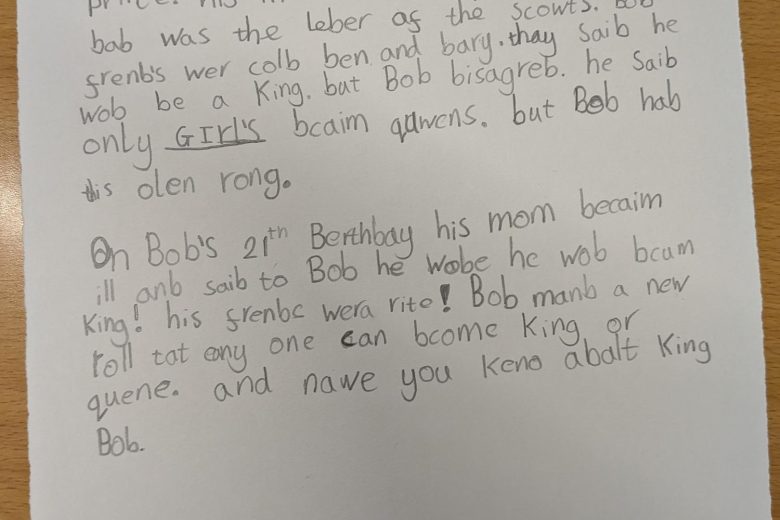 bab was the leber of the scowts. Bob
frenb's wer colb ben and bary. thay Saib he
wob be a King. but Bob bisagreb. he Saib
only GIrl's bcaim quwens. but Bob hab
this olen rong.
On Bob's 21th Berthbay his mom becaim
ill anb saib to Bob he wobe he wob bcum
King! his frenbc wera rite! Bob manb a new
roll tat eny one can bcome King or
quene. and nawe you keno abalt King
Bob.